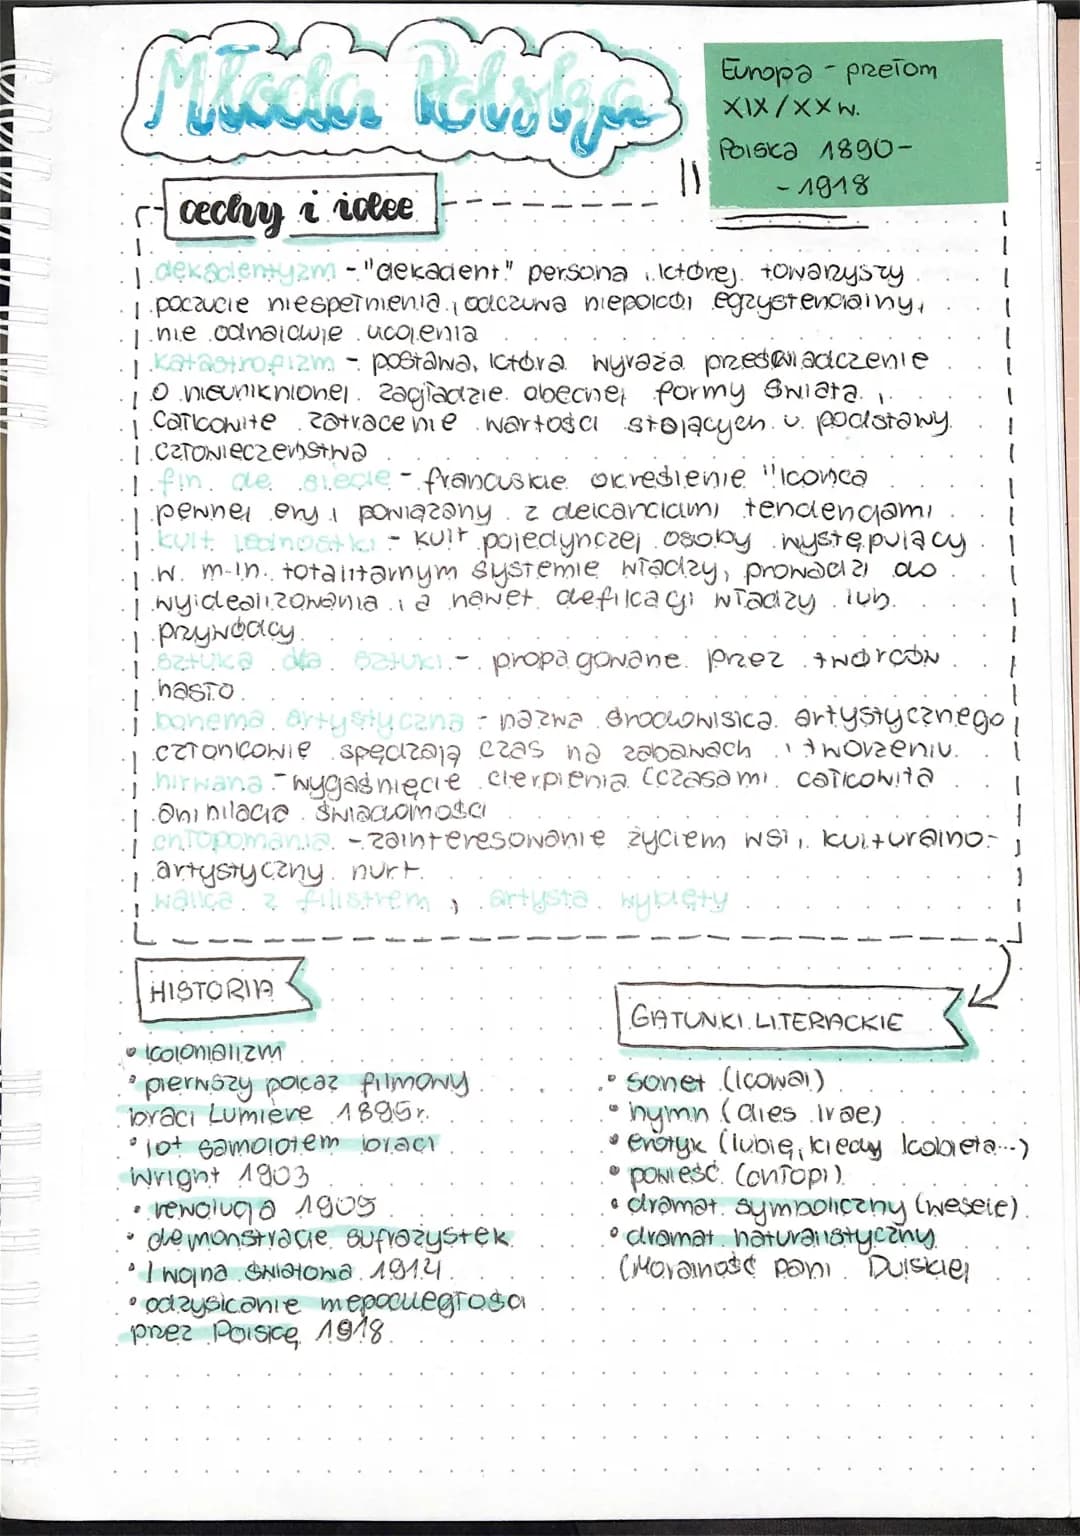 Młoda Polska
Europa - przełom
XIX/XX w.
Polska 1890-
- 1918
cechy i idee
dekadentyzm - "dekadent" persona, której towarzyszy
poczucie niespełnienia, odczuwa niepokój egzystencjalny,
nie odnajduje ukojenia
katastrofizm - postawa, która wyraża przeświadczenie
o nieuniknionej zagładzie obecnej formy świata,
całkowite zatracenie wartości stojących u podstawy
człowieczeństwa
fin de siecle - francuskie określenie "końca
pewnej ery, powiązany z dekanckimi tendencjami
kult jednostki - kult pojedynczej osoby występujący
w m-in. totalitarnym systemie władzy, prowadzi do
wyidealizowania, a nawet defikacji władzy lub
przywódcy
sztuka dla sztuki - propagowane przez twórców
hasło
bohema artystyczna - nazwa środowiska artystycznego,
członkowie spędzają czas na zabawach i tworzeniu
nirwana - wygaśnięcie cierpienia (czasami całkowita
anihilacja świadomości
chłopomania - zainteresowanie życiem wsi, kulturalno-
artystyczny nurt
walka z filistrem, artysta wyklęty
HISTORIA
• kolonializm
• pierwszy pokaz filmowy
braci Lumière 1895r.
• lot samolotem braci
Wright 1903
• rewolucja 1905
• demonstracje sufrażystek
• I wojna światowa 1914
• odzyskanie niepodległości
przez Polskę 1918
GATUNKI LITERACKIE
• sonet (kowal)
• hymn (dies irae)
• erotyk (lubię, kiedy kobieta...)
• powieść (chłopi)
• dramat symboliczny (wesele)
• dramat naturalistyczny
(Moralność pani Dulskiej